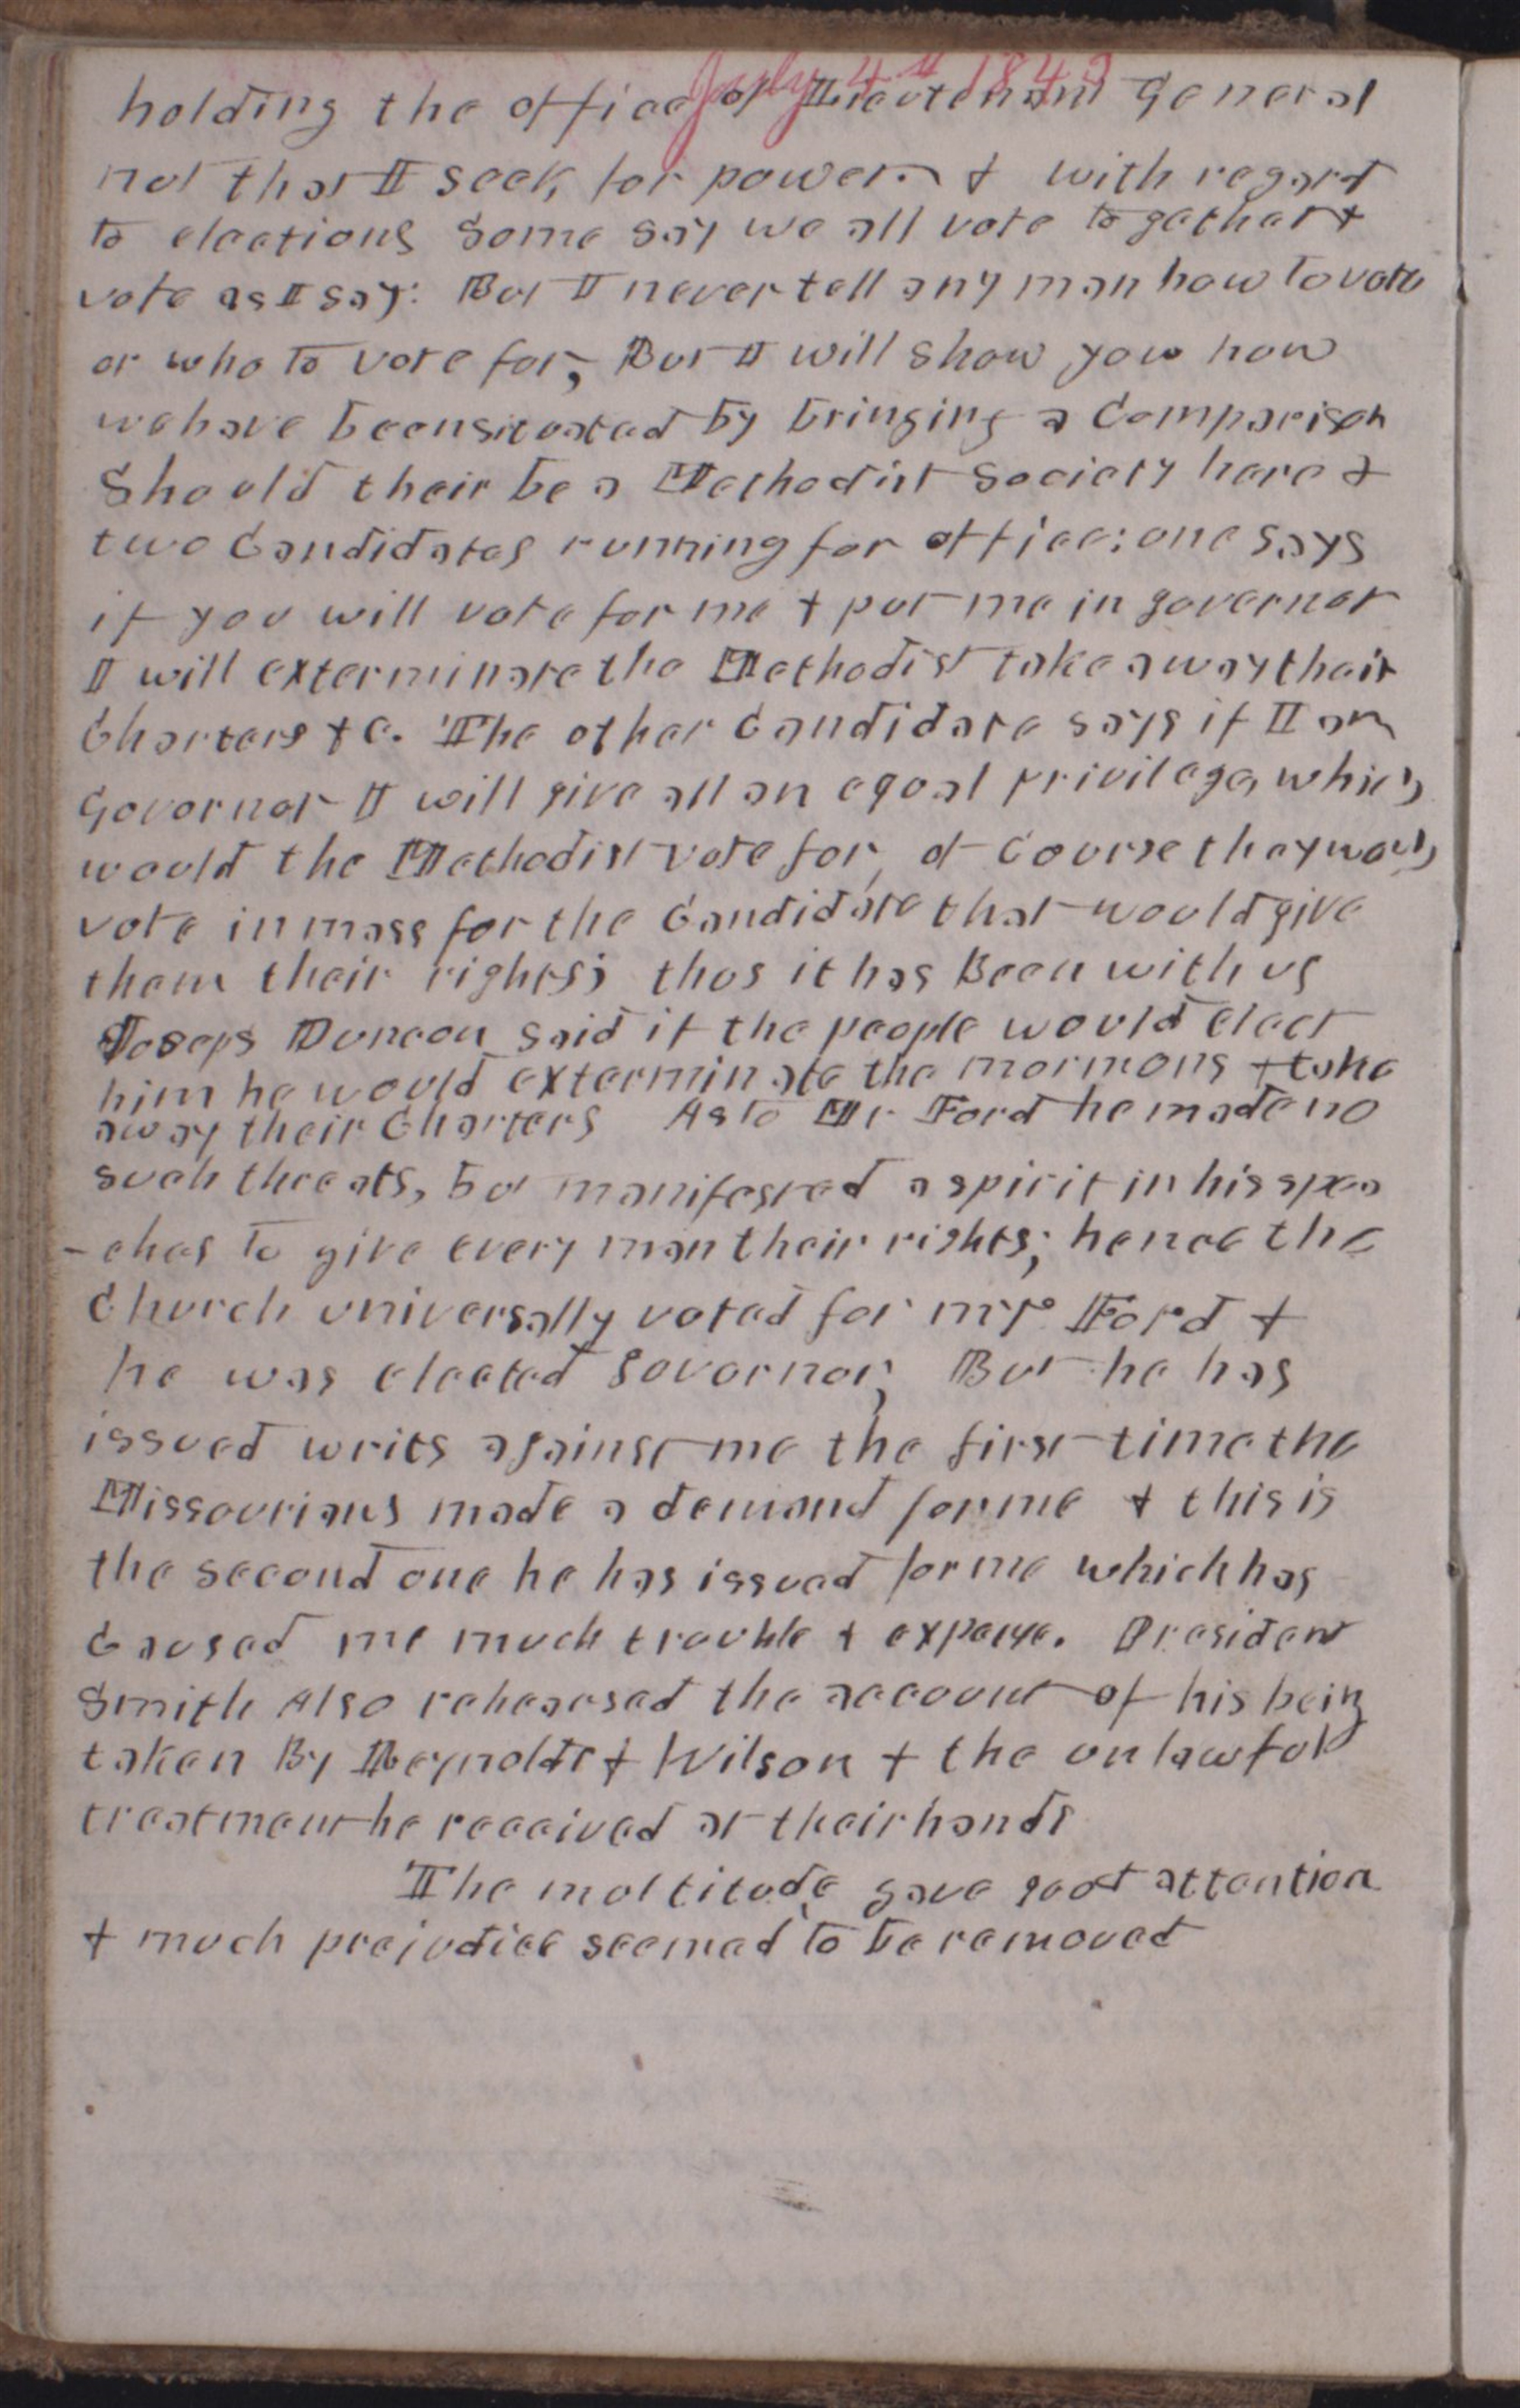 July 4th 1843
holding the office of Lieutenant General
not that I seek for power. & with regard
to elections Some say we all vote together &
vote as I say: But I never tell any man how to vote
or who to vote for, But I will show you how
we have been situated by bringing a Comparison
Should their be a Methodist Society here &
two Candidates running for office: one says
if you will vote for me & put me in governor
I will exterminate the Methodist take away their
Charters &c. The other Candidate says if I am
Governor I will give all an equal privilege, which
would the Methodist vote for, of Course they would
vote in mass for the Candidate that would give
them their rights; thus it has Been with us
Joseph Duncan said if the people would elect
him he would exterminate the mormons & take
away their Charters As to Mr Ford he made no
such threats, but manifested a spirit in his spee
-ches to give every man their rights; hence the
Church universally voted for mr. Ford &
he was elected Governor, But he has
issued writs against me the first time the
Missourians made a demand for me & this is
the second one he has issued for me which has
Caused me much trouble & expense. President
Smith Also rehearsed the account of his being
taken By Reynolds & Wilson & the unlawful
treatment he received at their hands
The multitude gave good attention
& much prejudice seemed to be removed